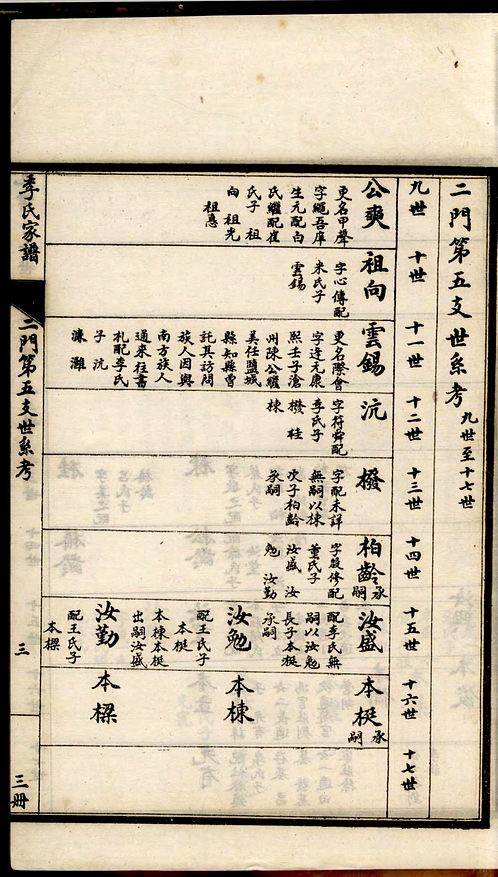 二門第五支世系考 九世至十七世
九世
十世
十一世
十二世
十三世
十四世
十五世
十六世
十七世
公奭
更名甲聲
字繩吾庠
生元配白
氏繼配崔
氏子 祖
向 祖光
祖惪
祖向
字心傳配
米氏子
雲錫
雲錫
更名際會
字逢元康
熙壬子滄
州陳公耀
美任鹽城
縣知縣曾
託其訪問
南方族人
族人因與
通來往書
札配李氏
子 沆
濂 濰
沆
字符舜配
李氏子
橃 桂
棟
橃
字配未詳
無嗣以棟
次子柏齡
承嗣
柏齡 承嗣
字殿修配
董氏子
汝盛 汝
勉 汝勤
汝盛
配李氏無
嗣以汝勉
長子本梃
承嗣
汝勉
配王氏子
本梃
本棟本梃
出嗣汝盛
汝勤
配王氏子
本樑
本梃 承嗣
本棟
本樑
季氏家譜
二門第五支世系考
三
三冊